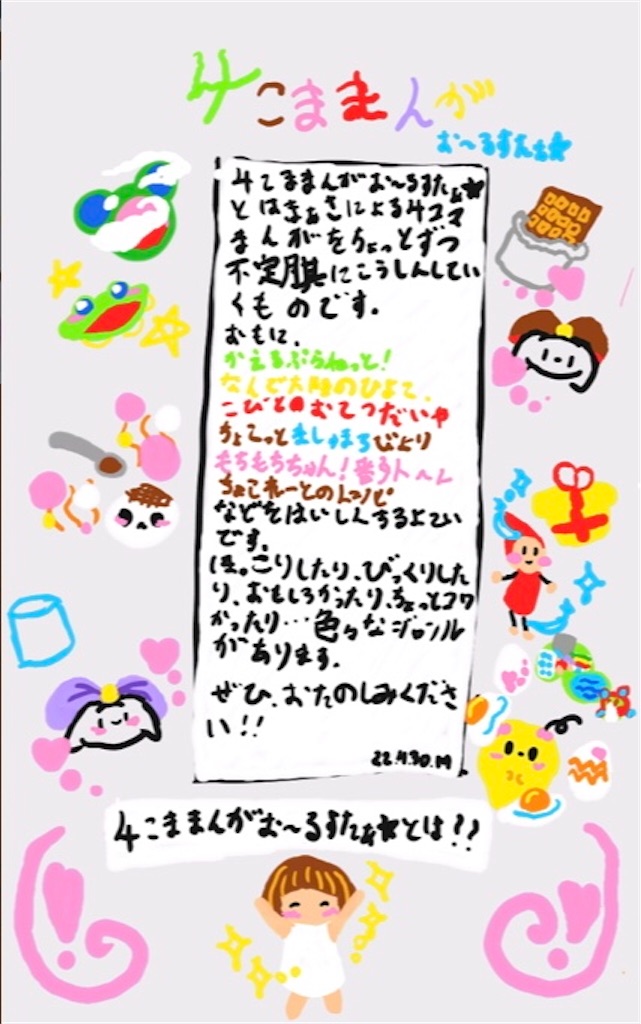 4こままんが
お〜るすたぁ★
4こままんがお〜るすたぁ★
とはきぁさによる4コマ
まんがをちょっとずつ
不定期にこうしんしてい
くものです。
おもに、
かえるぷらねっと!
なんで太陽のひよこ、
こびとのおてつだいや
ちょこっとましゅまろびより
もちもちちゃん!
ちょこれーとのレシピ
などをはいしんするよてい
です。
ほっこりしたり、びっくりした
り、おもしろかったり、ちょっとコワ
かったり…色々なジャンル
があります。
ぜひ、おたのしみくださ
い!!
22.4.30.
4こままんがお〜るすたぁ★とは!?